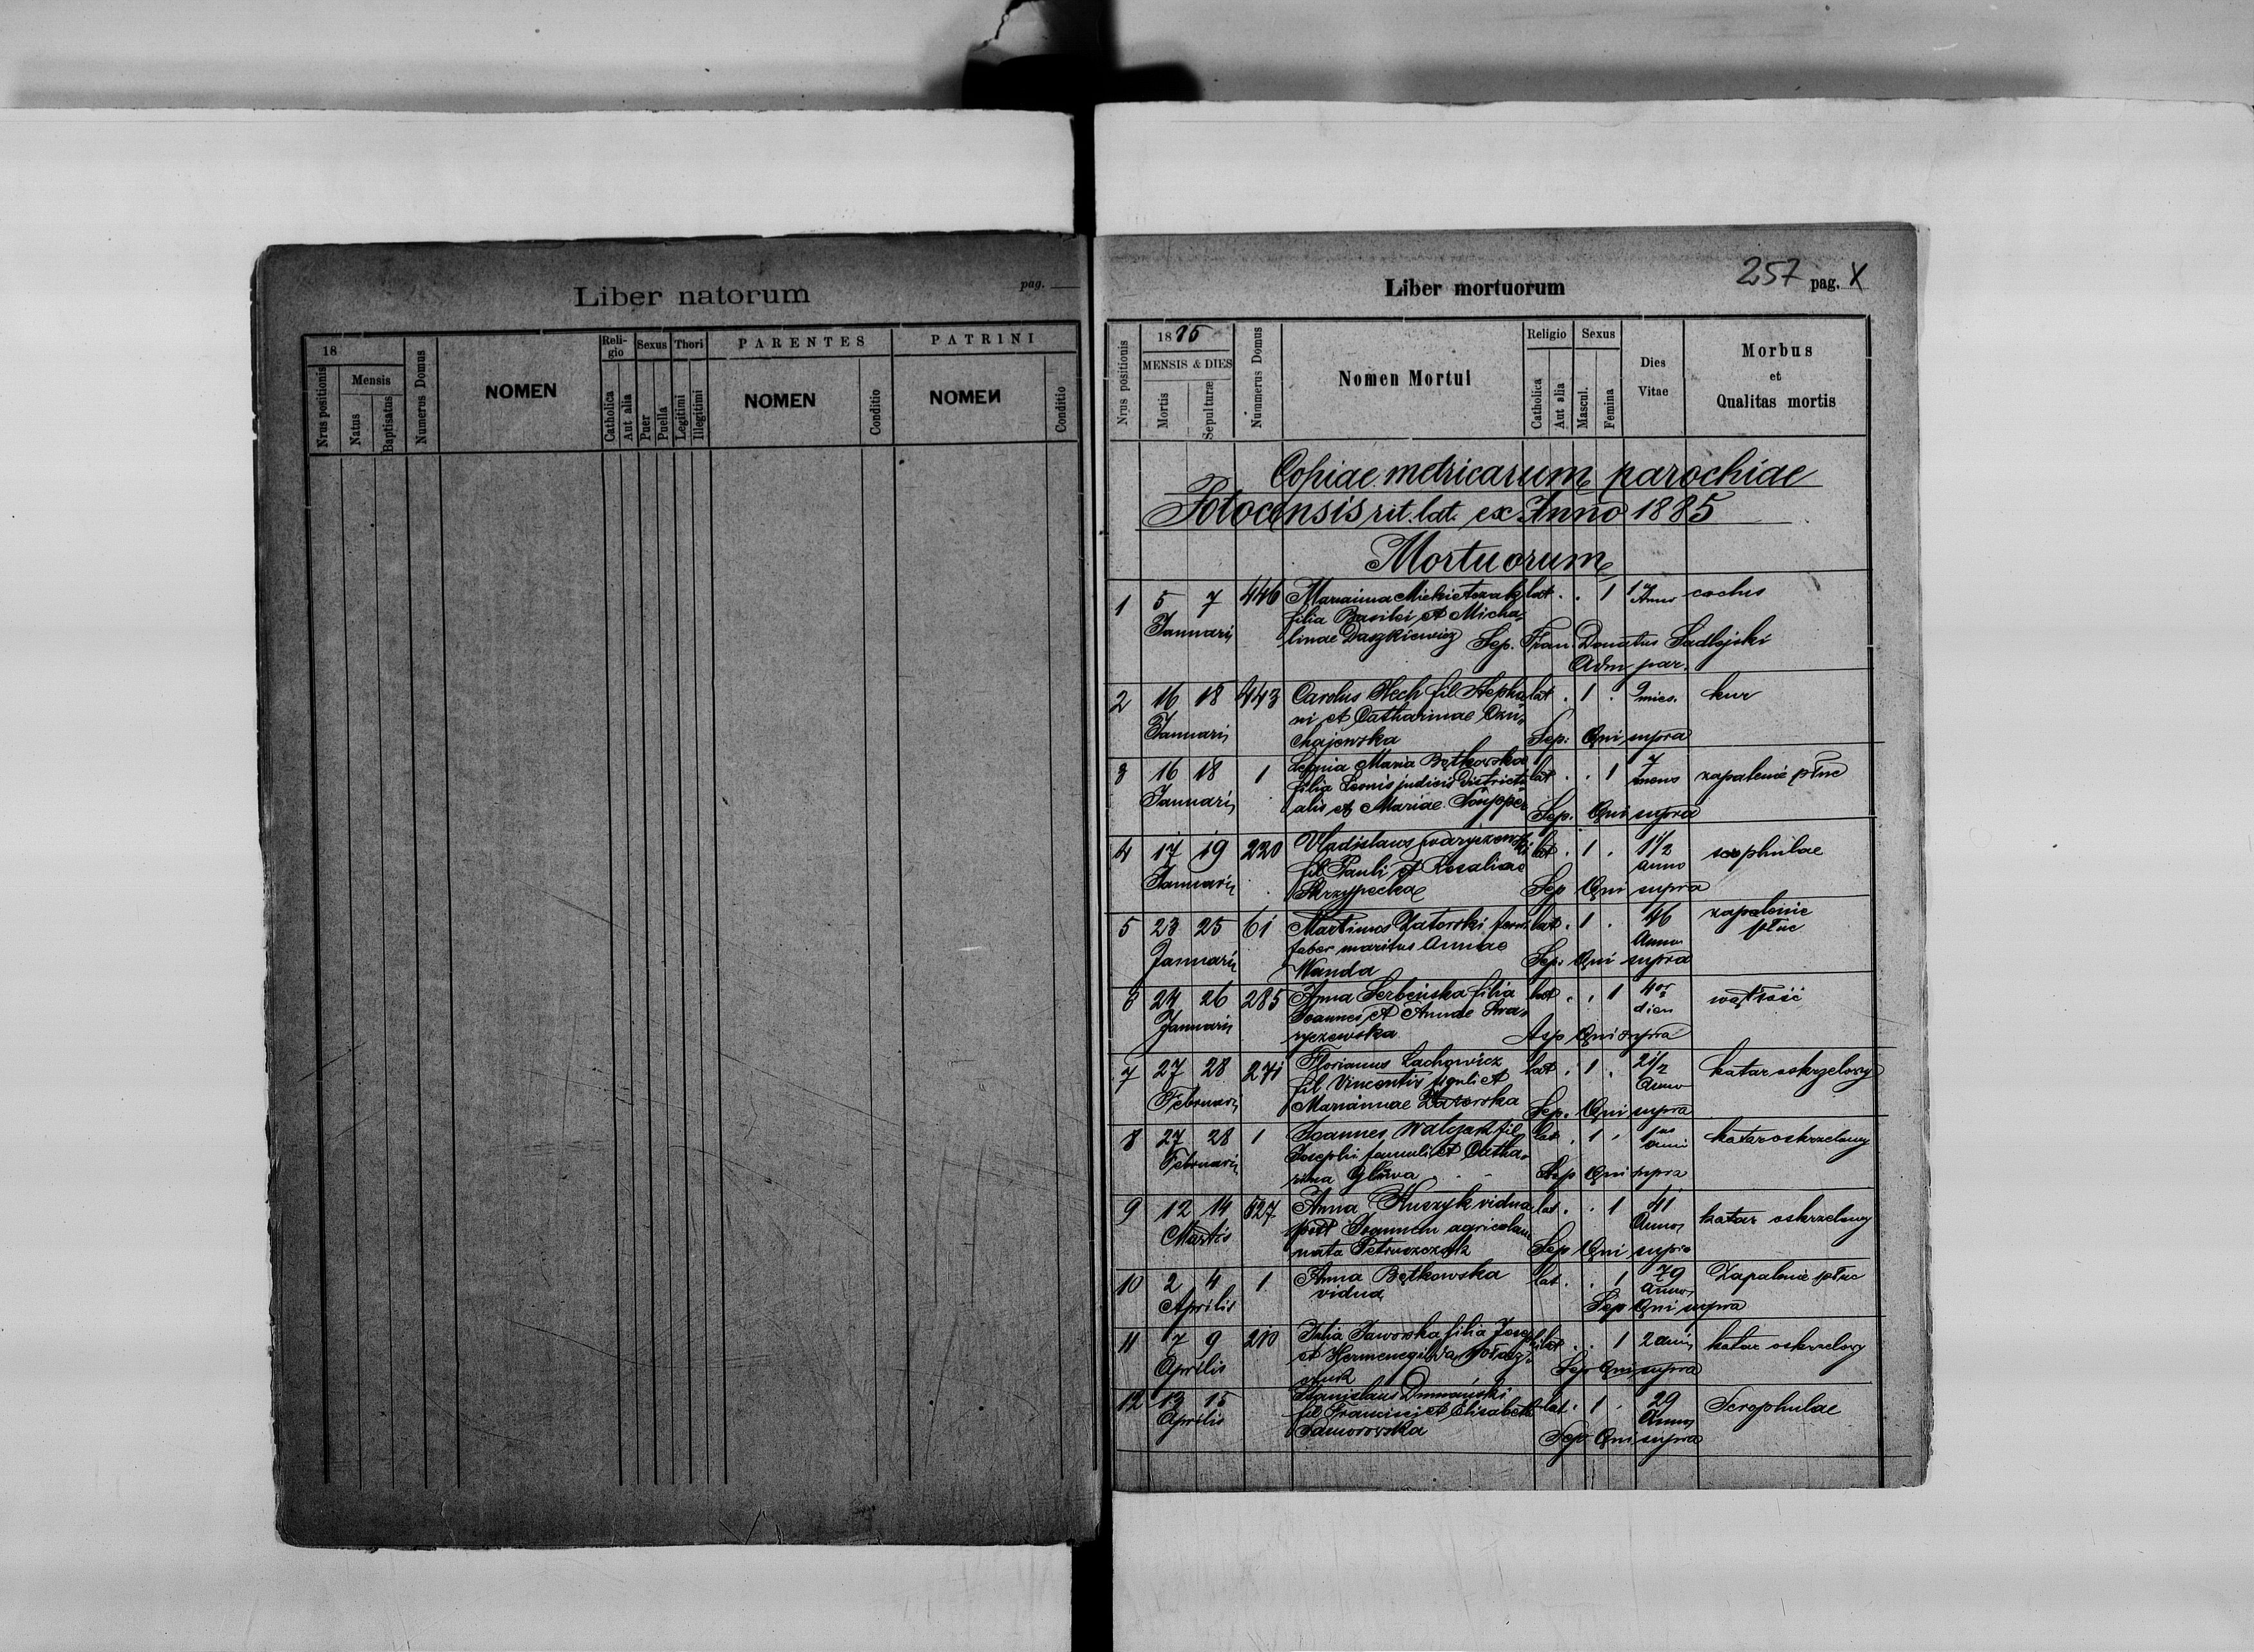 Liber natorum
pag.
18
Nrus positionis
Mensis
Natus
Baptisatus
Numerus Domus
NOMEN
Reli-
gio
Catholica
Aut alia
Sexus
Puer
Puella
Thori
Legitimi
Illegitimi
PARENTES
NOMEN
Conditio
PATRINI
NOMEN
Conditio
257 pag. X
Liber mortuorum
Nrus positionis
1885
MENSIS & DIES
Mortis
Sepulturæ
Nummerus Domus
Nomen Mortui
Religio
Catholica
Aut alia
Sexus
Mascul.
Femina
Dies
Vitae
Morbus
et
Qualitas mortis
Copiae metricarum parochiae
Potocensis rit. lat. ex Anno 1885
Mortuorum
1 5 7 446 Marianna lat. . . 1 1 Anno
Januarii filia Basilii et Micha-
linae Daszkiewicz Sep. Fran. Donatus Sadlejski
Adm par.
2 16 18 443 Carolus Hech fil Stepha- lat . 1 . 9 mies. kur
Januarii ni et Catharinae
Sep: Qui supra
3 16 18 1 Maria Bętkowska lat . . 1 7 mens zapalenie płuc
Januarii filia Leonis judicis Districtu-
alis et Mariae Sep. Qui supra
4 17 19 220 Vladislaus lat . 1 . 1 1/2 anno scrophulae
Januarii fil Pauli et Rosaliae
Skrzypecka Sep Qui supra
5 23 25 61 Martinus Zatorski ferri lat . 1 . 46 Annos zapalenie
płuc
Januarii faber maritus Annae
Wanda Sep. Qui supra
6 24 26 285 Anna Serbeńska filia lat . . 1 4or dien wątłość
Januarii Joannes et Annae Swa-
ryczewska Sep Qui supra
7 27 28 271 Florianus Lachowicz lat . 1 . 2 1/2 Anno katar oskrzelowy
Februarii fil Vincentii figuli et
Mariannae Sep. Qui supra
8 27 28 1 Joannes Walczak fil lat . 1 . 1 anni katar oskrzelowy
Februarii Josephi famuli et Catha-
rina Gliwa Sep Qui supra
9 12 14 527 Anna vidua lat. . . 1 41 Annos katar oskrzelowy
Martis post Joannem agricolam
nata Sep Qui supra
10 2 4 1 Anna Bętkowska lat. . 1 79 Annos Zapalenie płuc
Aprilis vidua Sep Qui supra
11 7 9 210 Julia Jaworska filia Josephi lat . . 1 2 anni katar oskrzelowy
Aprilis et Hermenegilda
Sep Qui supra
12 13 15 Stanislaus lat. 1 . 29 Annos Scrophulae
Aprilis fil Francisci et Elisabeth
Sep. Qui supra